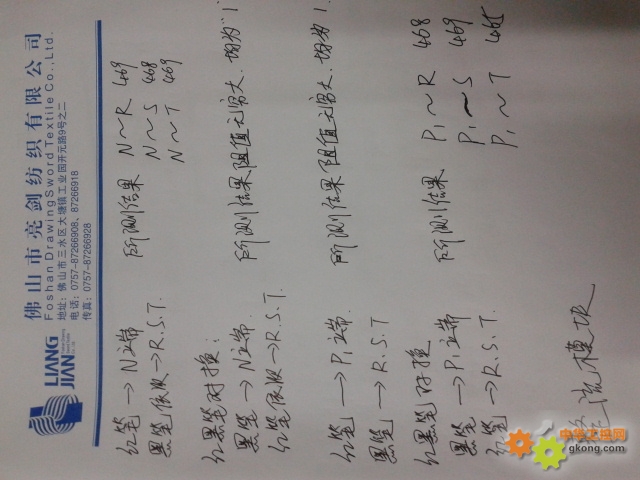 LIANG
JIAN
佛山市亮剑纺织有限公司
Foshan Drawing Sword Textile Co.,Ltd.
地址：佛山市三水区大塘镇工业园开元路9号之二
电话：0757-87266908、87266918
传真：0757-87266928
红笔→N端 所测结果 N～R 469
黑笔依次→R.S.T N～S 468
N～T 469
红黑笔对换：
黑笔→N端. 所测结果阻值无穷大.均为"1
红笔依次→R.S.T.
红笔→P1端 所测结果 阻值无穷大.均为 1.
黑笔→R.S.T
红黑笔对换 P1～R 468
黑笔→P1端 所测结果 P1～S 469
红笔→R.S.T. P1～T 465
整流模块
中华工控网
gkong.com